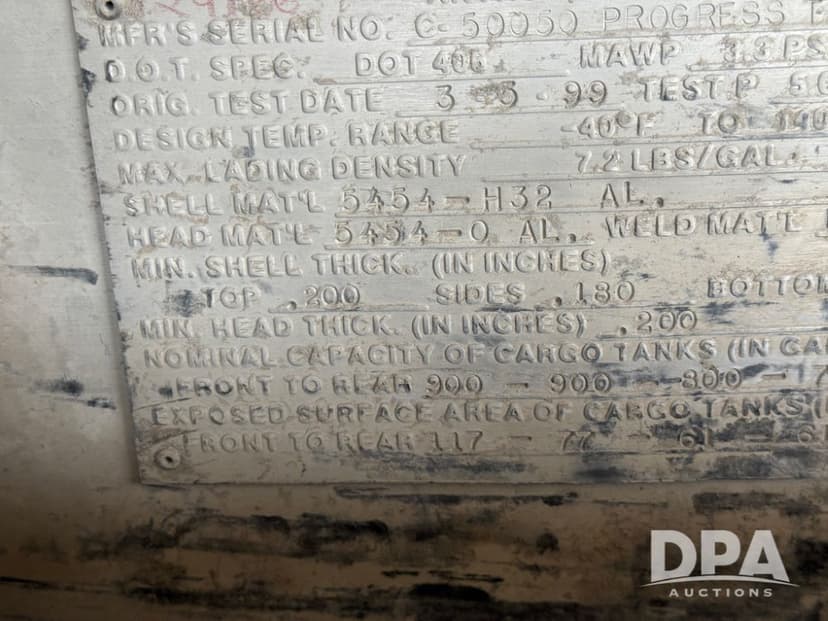 MFR'S SERIAL NO. C-50050 PROGRESS
D.O.T. SPEC. DOT 406 MAWP 3.3 PS
ORIG. TEST DATE 3-5-99 TEST P
DESIGN TEMP. RANGE -40°F TO 140
MAX. LADING DENSITY 7.2 LBS/GAL.
SHELL MAT'L 5454-H32 AL.
HEAD MAT'L 5454-O AL. WELD MAT'L
MIN. SHELL THICK. (IN INCHES)
TOP .200 SIDES .180 BOTTOM
MIN. HEAD THICK. (IN INCHES) .200
NOMINAL CAPACITY OF CARGO TANKS (IN GA
FRONT TO REAR 900 - 900 - 800 -
EXPOSED SURFACE AREA OF CARGO TANKS (
FRONT TO REAR 117 - 77 - 61 - 61
DPA
AUCTIONS